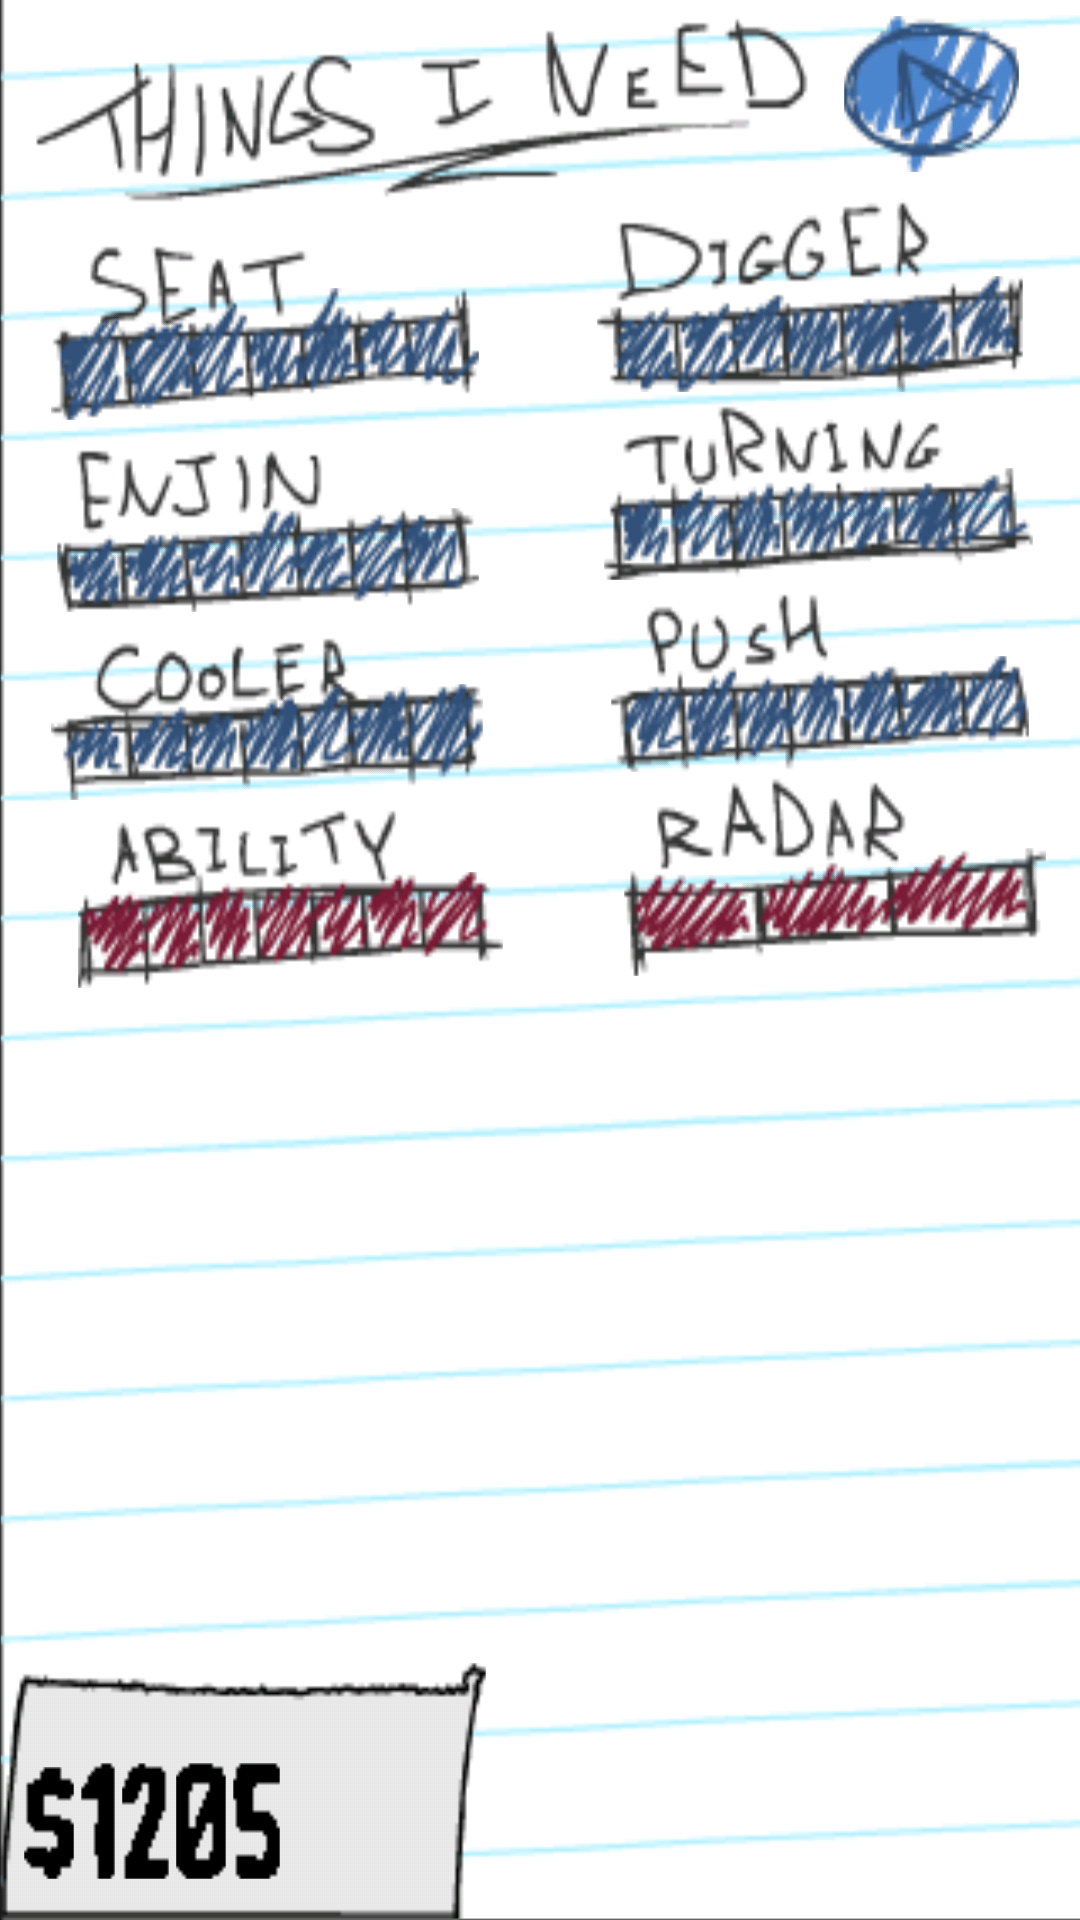 THINGS I NEED
SEAT
DIGGER
ENJIN
TURNING
COOLER
PUSH
ABILITY
RADAR
$1205